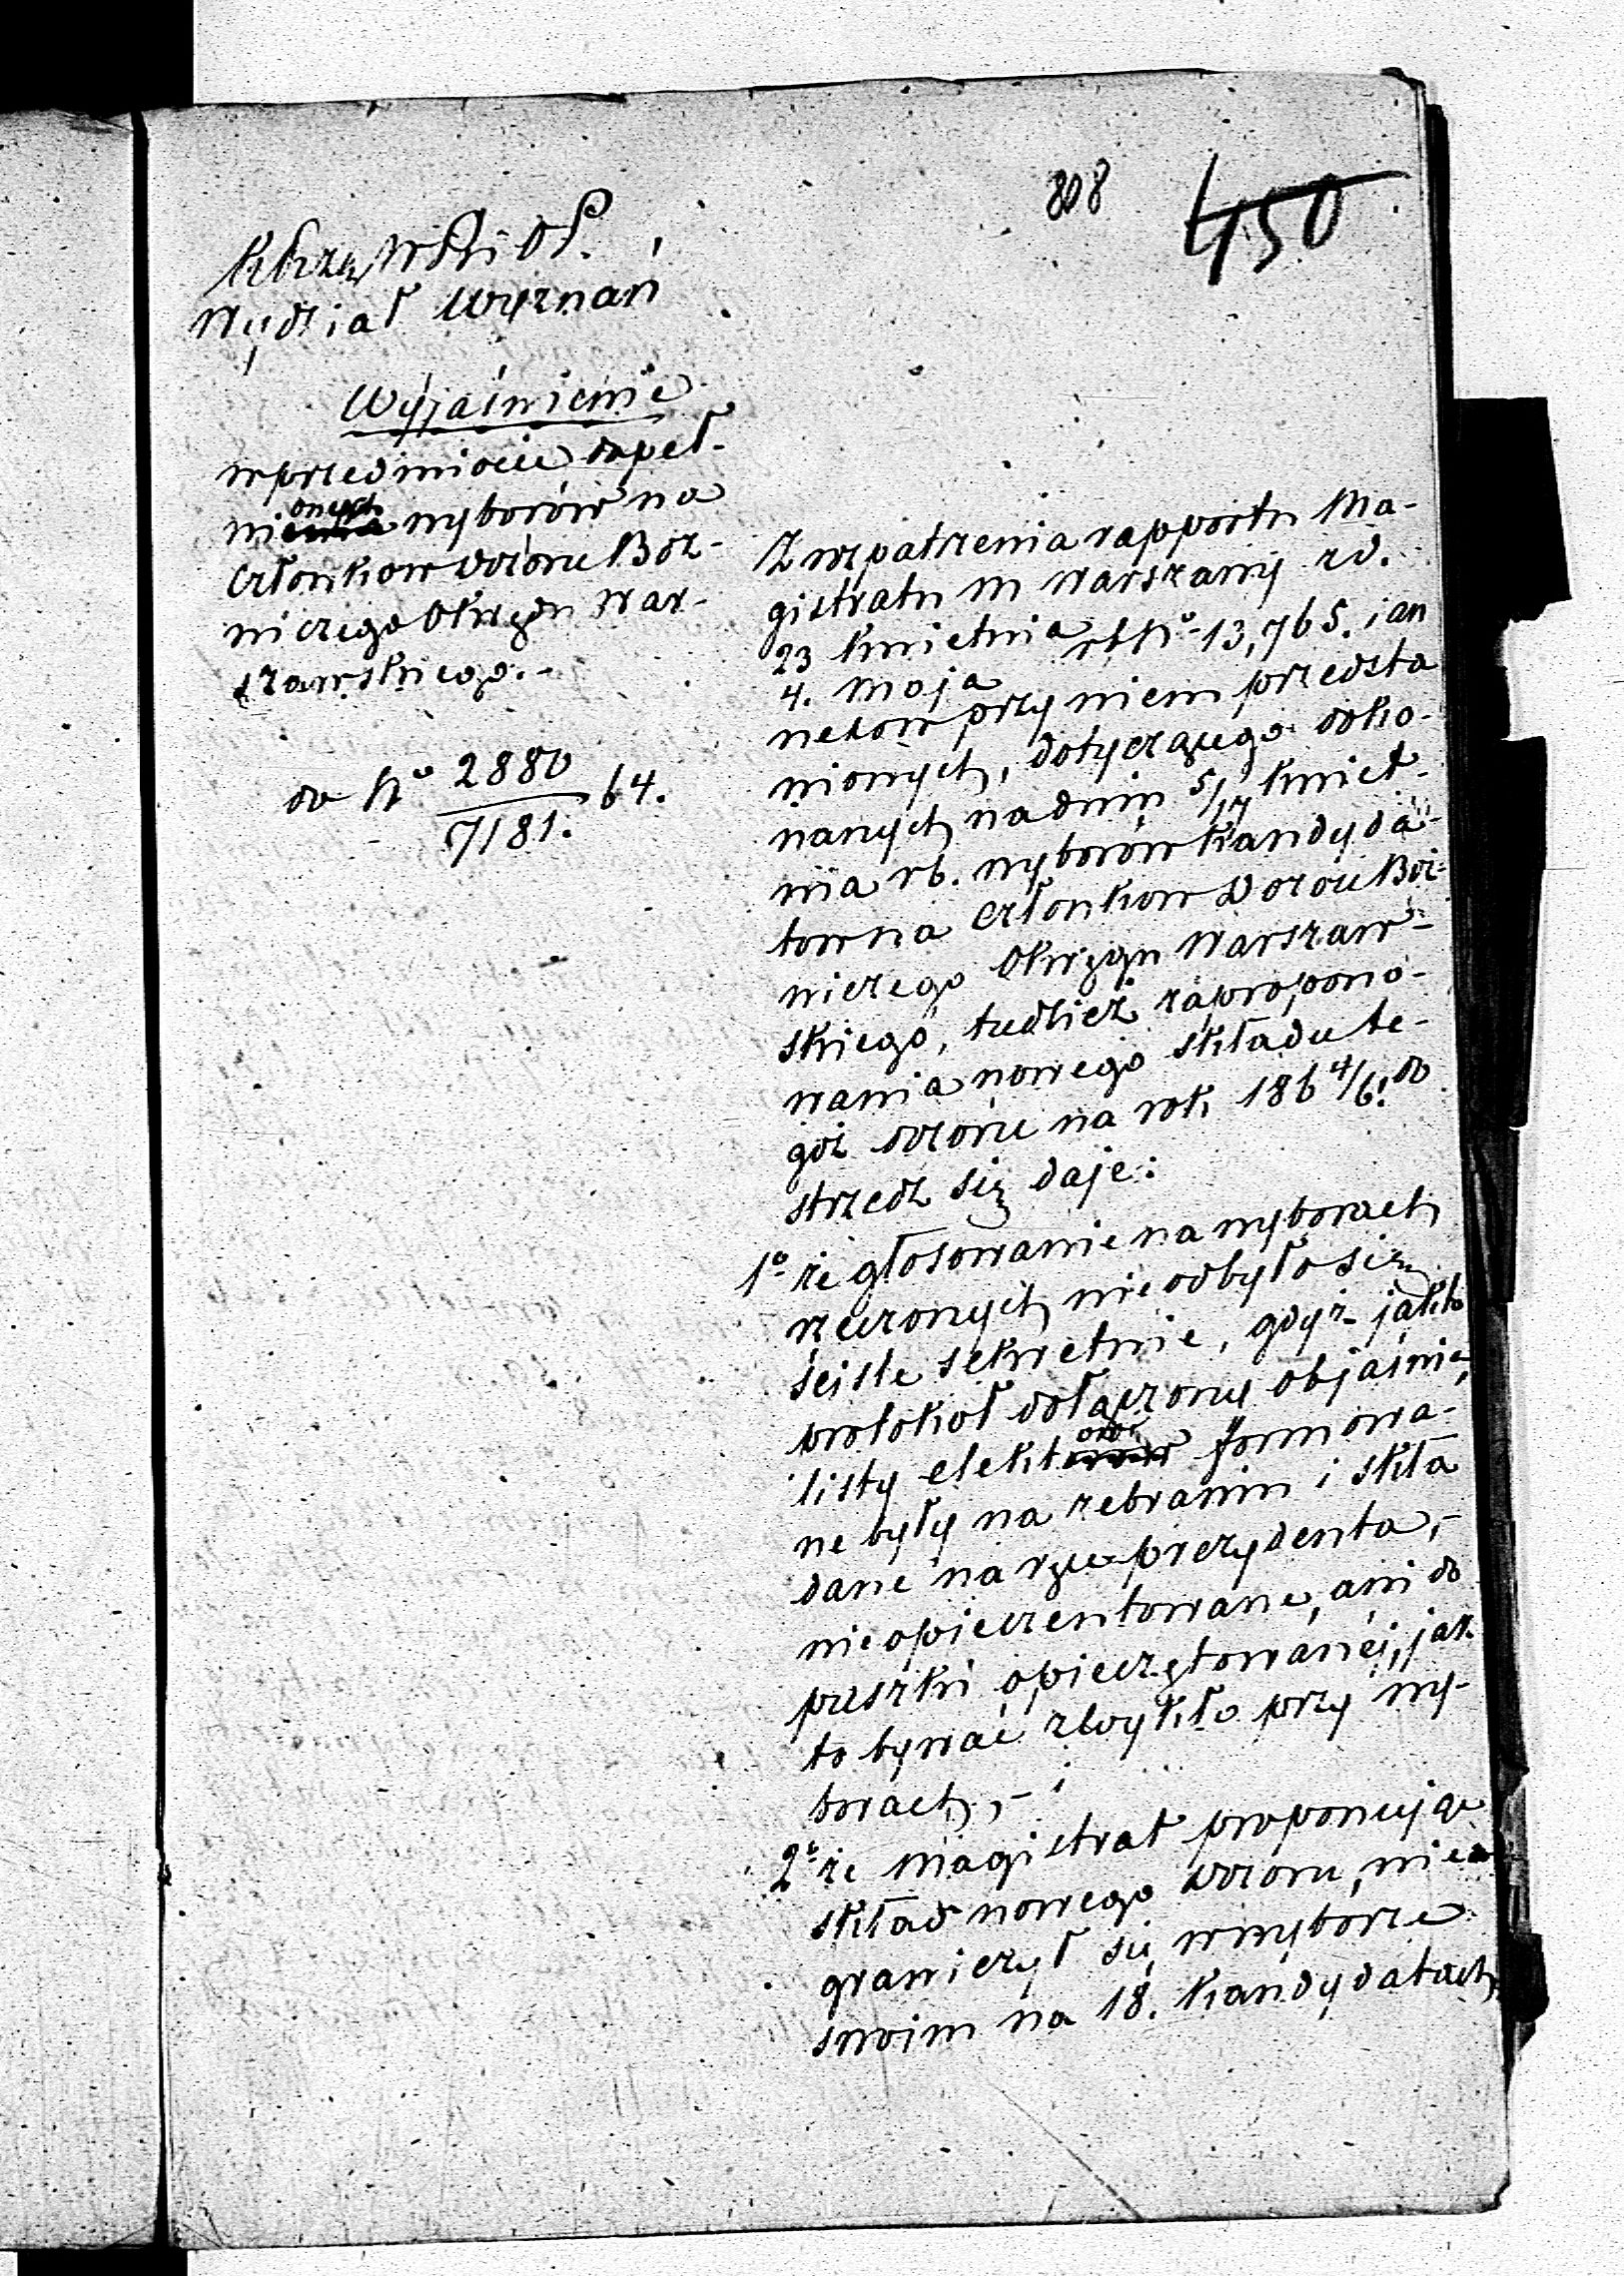 808
450
KRząWRiOP.
Wydział Wyznań
Wyjaśnienie
w przedmiocie dopeł-
nionych wyborów na
członków Dozoru Boż-
niczego Okręgu War-
szawskiego.-
do No 2880/7181. 64.
Z wypatrzenia rapportu Ma-
gistratu m Warszawy z d.
23 kwietnia
4. Maja rb No 13,765. i an
nexów przy niem przedsta
wionych, dotyczącego doko-
nanych na dniu 5/17 kwiet-
nia rb. wyborów kandyda-
tow na członkow Dozoru Boż-
niczego Okręgu Warszaw-
skiego, tudzież zapropono-
wania nowego składu te-
goż dozoru na rok 1864/6. do
strzedz się daje:
1o że głosowanie na wyborach
rzeczonych nie odbyło się
ściśle sekretnie, gdyż jak to
protokół dołączony objaśnia,
listy elektorów formowa-
ne były na zebraniu i skła
dane na ręce prezydenta,-
nieopieczentowane, ani do
puszki opieczętowanéj, jak
to bywać zwykło przy wy-
borach,-
2o że magistrat proponując
skład nowego dozoru, nie o
graniczył się w wyborze
swoim na 18. kandydatach